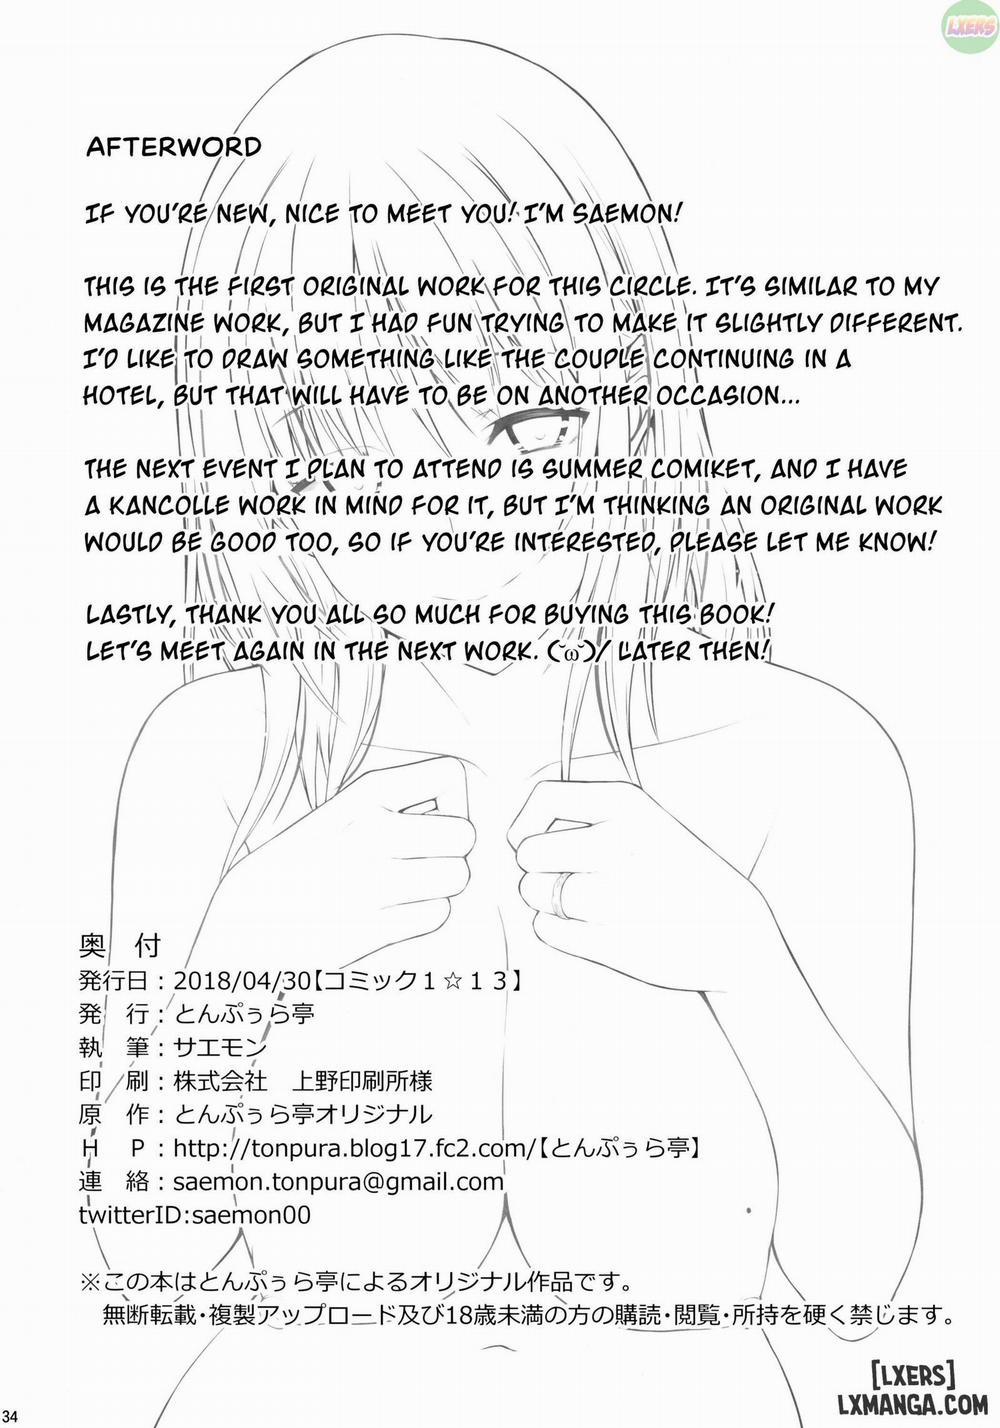 LXERS
AFTERWORD
IF YOU'RE NEW, NICE TO MEET YOU! I'M SAEMON!
THIS IS THE FIRST ORIGINAL WORK FOR THIS CIRCLE. IT'S SIMILAR TO MY
MAGAZINE WORK, BUT I HAD FUN TRYING TO MAKE IT SLIGHTLY DIFFERENT.
I'D LIKE TO DRAW SOMETHING LIKE THE COUPLE CONTINUING IN A
HOTEL, BUT THAT WILL HAVE TO BE ON ANOTHER OCCASION...
THE NEXT EVENT I PLAN TO ATTEND IS SUMMER COMIKET, AND I HAVE
A KANCOLLE WORK IN MIND FOR IT, BUT I'M THINKING AN ORIGINAL WORK
WOULD BE GOOD TOO, SO IF YOU'RE INTERESTED, PLEASE LET ME KNOW!
LASTLY, THANK YOU ALL SO MUCH FOR BUYING THIS BOOK!
LET'S MEET AGAIN IN THE NEXT WORK. (˘ω˘)/ LATER THEN!
奥　付
発行日：2018/04/30【コミック１☆１３】
発　行：とんぷぅら亭
執　筆：サエモン
印　刷：株式会社　上野印刷所様
原　作：とんぷぅら亭オリジナル
Ｈ　Ｐ：http://tonpura.blog17.fc2.com/【とんぷぅら亭】
連　絡：saemon.tonpura@gmail.com
twitterID:saemon00
※この本はとんぷぅら亭によるオリジナル作品です。
無断転載・複製アップロード及び18歳未満の方の購読・閲覧・所持を硬く禁じます。
[LXERS]
LXMANGA.COM
34